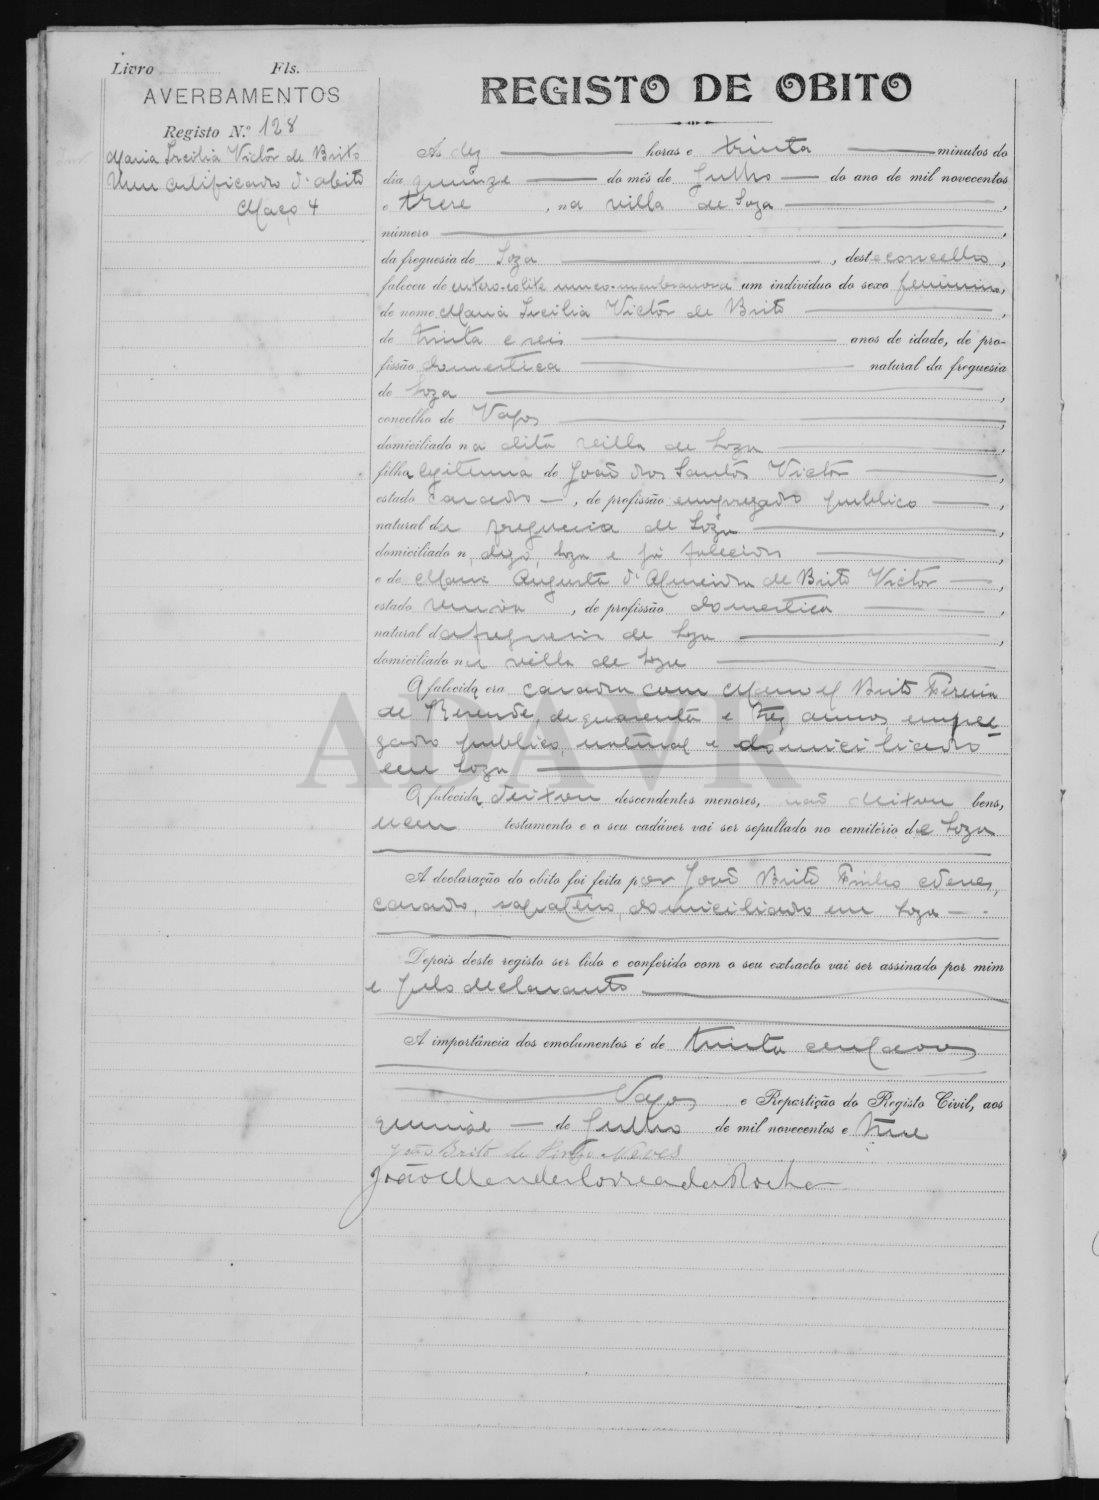 Livro Fls.
AVERBAMENTOS
Registo N.º 128
Maria Cecilia Victôr de Brito
Um certificado d'obito
Maço 4
REGISTO DE OBITO
Ás dez horas e trinta minutos do
dia quinze do mês de Julho do ano de mil novecentos
e treze, na villa de Soza,
número,
da freguesia de Soza, deste concelho,
faleceu de entero-colite muco-membranosa um individuo do sexo feminino,
de nome Maria Cecilia Victôr de Brito,
de trinta e seis anos de idade, de pro-
fissão domestica natural da freguesia
de Soza,
concelho de Vagos,
domiciliado na dita villa de Soza,
filha legitima de João dos Santos Victor,
estado casado, de profissão empregado publico,
natural da freguesia de Soza,
domiciliado n, digo, Soza e já falecido,
e de Maria Augusta d'Almeida de Brito Victor,
estado viuva, de profissão domestica,
natural da freguesia de Soza,
domiciliado na villa de Soza
A falecida era casada com Manoel Brito Pereira
de Rezende, de quarenta e tres annos, empre-
gado publico, natural e domiciliado
em Soza
A falecida deixou descendentes menores, não deixou bens,
nem testamento e o seu cadáver vai ser sepultado no cemitério de Soza
A declaração do obito foi feita por João Brito Neves,
casado, sapateiro, domiciliado em Soza
Depois deste registo ser lido e conferido com o seu extracto vai ser assinado por mim
e pelo declarante
A importância dos emolumentos é de trinta centavos
Vagos e Repartição do Registo Civil, aos
quinze de Julho de mil novecentos e treze
João Brito de Neves
João Mendes Correia da Rocha
ADAVR